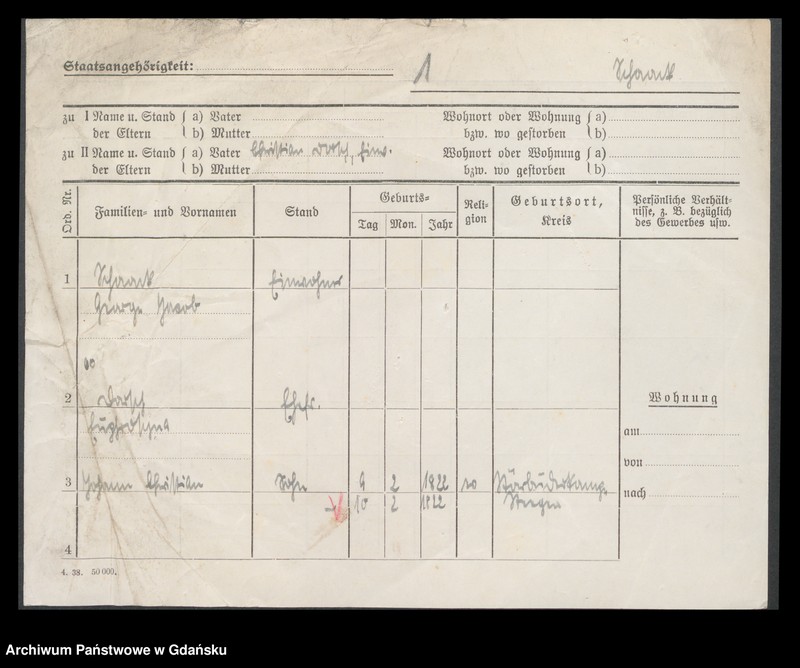 Staatsangehörigkeit:
1 Schaack
zu I Name u. Stand der Eltern { a) Vater
b) Mutter
Wohnort oder Wohnung bzw. wo gestorben { a)
b)
zu II Name u. Stand der Eltern { a) Vater Christian Dorsch, Einw.
b) Mutter
Wohnort oder Wohnung bzw. wo gestorben { a)
b)
Ord. Nr.
Familien- und Vornamen
Stand
Geburts-
Tag Mon. Jahr
Reli-
gion
Geburtsort,
Kreis
Persönliche Verhält-
nisse, z. B. bezüglich
des Gewerbes usw.
1 Schaack Einwohner
George Jacob
oo
2 Dorsch Ehefr.
3 Johann Christian Sohn 9 2 1822
10 2 1822 Steegen
4
Wohnung
am
von
nach
4. 38. 50 000.
Archiwum Państwowe w Gdańsku